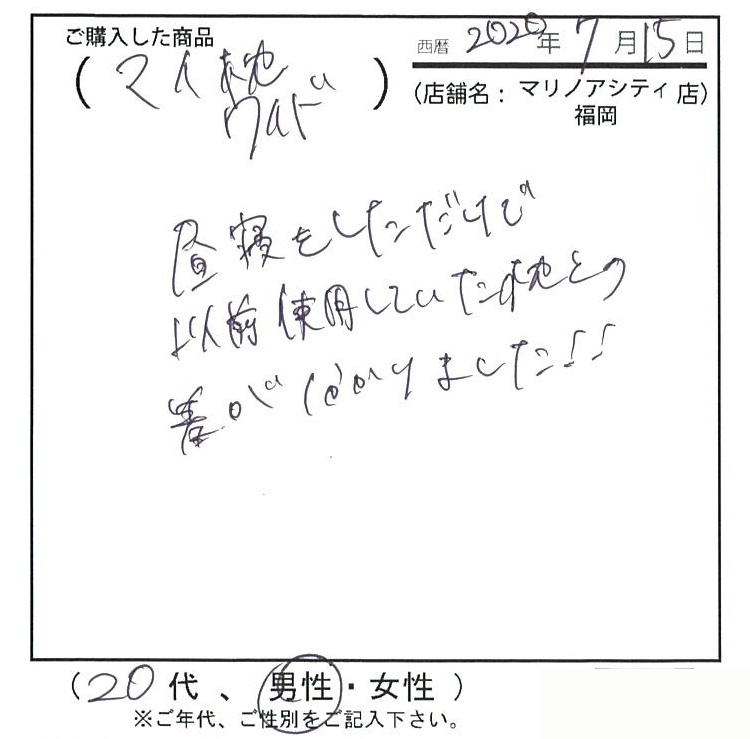 ご購入した商品
(マイ枕
ワイド)
西暦 2020年 7月15日
(店舗名: マリノアシティ 店)
福岡
昼寝をしただけで
以前使用していた枕との
差が分かりました!!
(20代、男性・女性)
※ご年代、ご性別をご記入下さい。